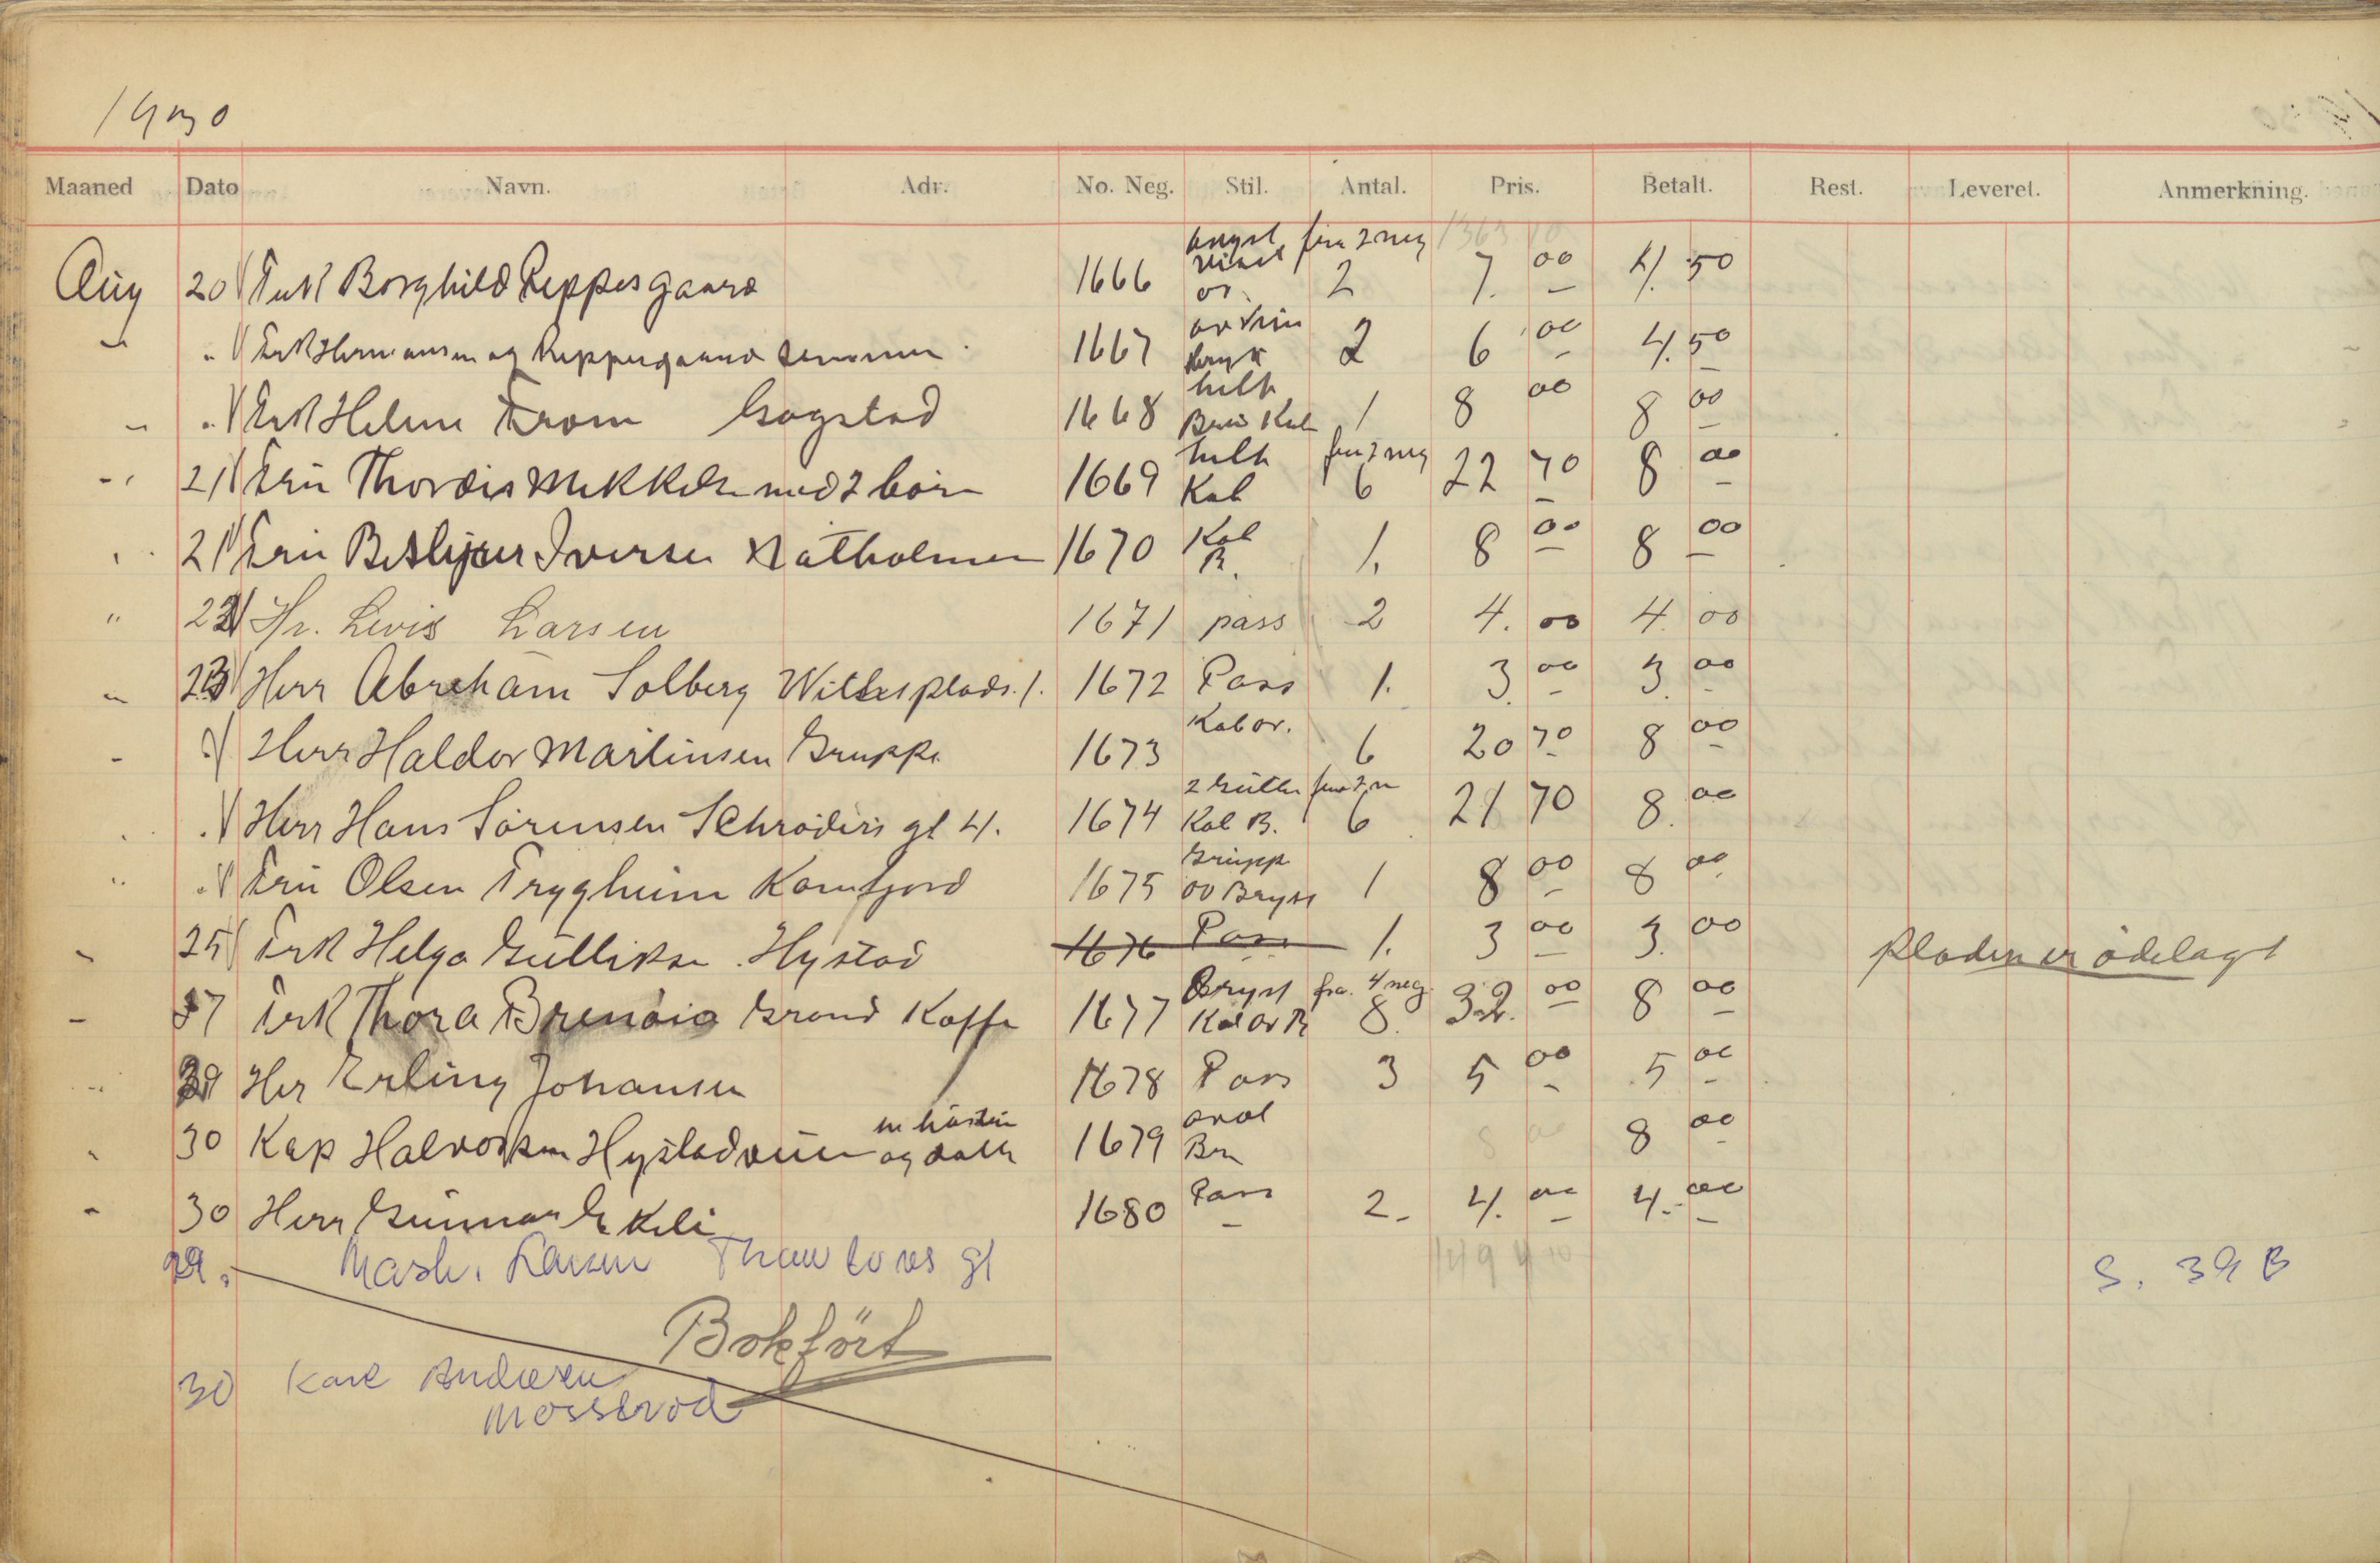 1930
Maaned Dato Navn. Adr. No. Neg. Stil. Antal. Pris. Betalt. Rest. Leveret. Anmerkning.
Aug 20 Frk Borghild Reppesgaard 1666 Bryst Visit ov. fra 2 neg 2 7. 00 4. 50
" " Frk Hermansen og Reppesgaard sammen 1667 Bryst 2 6 00 4. 50
" " Frk Helene From Gogstad 1668 helt Brev Kab 1 8 00 8 00
" 21 Fru Thordis Mikkelsen med 2 børn 1669 helt Kab fra 2 neg 6 22 70 8 00
" 21 Fru Iversen Natholmen 1670 Kab B. 1. 8 00 8 00
" 22 Hr. Levis Larsen 1671 pass 2 4. 00 4. 00
" 23 Herr Abraham Solberg Wittesplads. 1. 1672 Pass 1. 3. 00 3. 00
" " Herr Haldor Martinsen Gruppe 1673 Kab ov. 6 20 70 8 00
" " Herr Hans Sørensen Schrøders gt 4. 1674 2 Gutter fra 2 n Kab B. 6 21 70 8. 00
" " Fru Olsen Trygheim Kamfjord 1675 Grupp ov Bryst 1 8 00 8 00
" 25 Frk Helga Gulliksen Hystad 1676 Pass 1. 3 00 3. 00 Pladen er ødelagt
" 27 Frk Thora Grand Kaffe 1677 Bryst fra. 4 neg. Kab ov B 8. 32. 00 8 00
" 29 Her Erling Johansen 1678 Pass 3 5 00 5 00
" 30 Kap Halvorsen Hystadveien og datter 1679 oval Br 8 00 8 00
" 30 Herr Gunnar Ekeli 1680 Pass 2 - 4. 00 4. - 00
29. Mask. Larsen Thaulows gt S. 39 B
Bokført
30 Karl Andersen
Mosserød